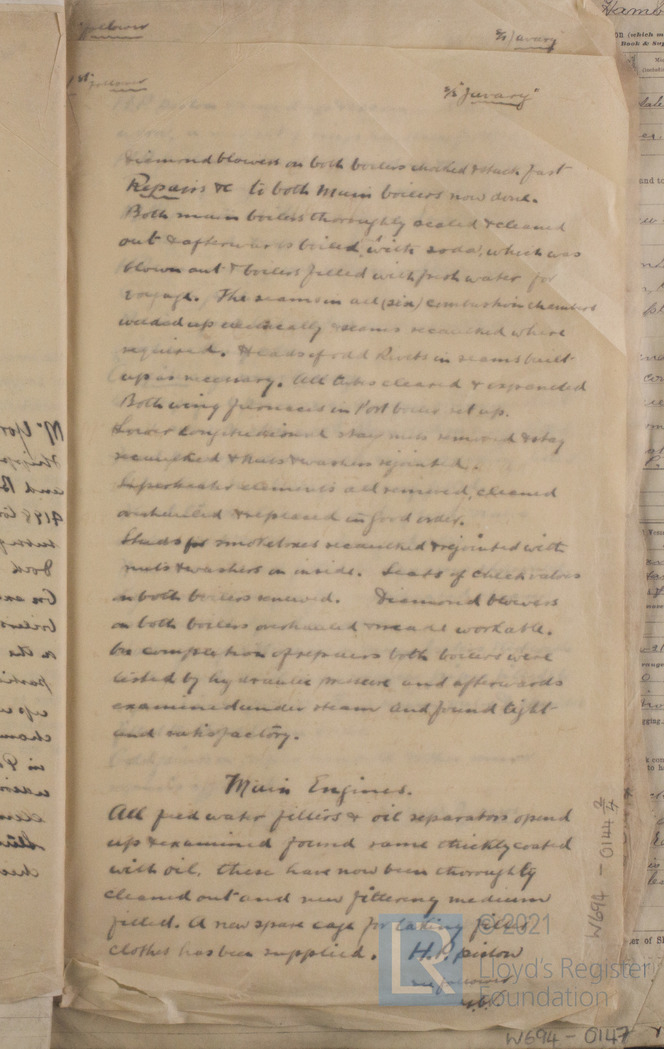 follows
S/S "Javary"
Hamb
(which m
Book & Sup
follows
S/S "Javary"
Diamond blowers on both boilers choked & stuck fast
Repairs &c to both Main boilers now done.
Both main boilers thoroughly scaled & cleaned
out & afterwards boiled with soda, which was
blown out & boilers filled with fresh water for
voyage. The seams in all (six) combustion chambers
welded up electrically & seams recaulked where
required. Heads of odd Rivets in seams built
up as necessary. All tubes cleaned & expanded
Both wing furnaces in Port boiler set up.
Lower longitudinal stay nuts removed & stay
recaulked & nuts & washers rejointed.
Superheater elements all removed, cleaned
overhauled & replaced in good order.
Studs for smokeboxes recaulked & rejointed with
nuts & washers on inside. Seats of check valves
on both boilers renewed. Diamond blowers
on both boilers overhauled & made workable.
On completion of repairs both boilers were
tested by hydraulic pressure and afterwards
examined under steam and found tight
and satisfactory.
Main Engines.
All feed water filters & oil separators opend
up & examined found same thickly coated
with oil, these have now been thoroughly
cleaned out and new filtering medium
fitted. A new spare cage for filter
clothes has been supplied. H.P. piston
see follower
W694-0144 2/4
© 2021
LR
Lloyd's Register
Foundation
W694-0147